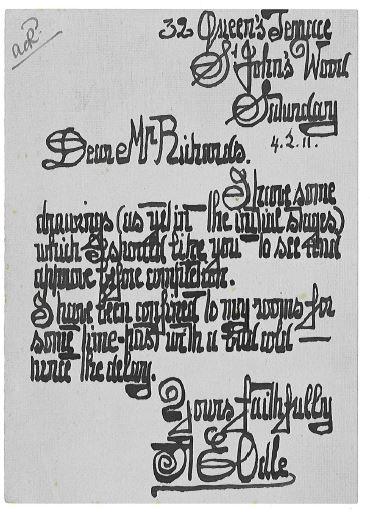 ack?
32 Queen's Terrace
St John's Wood
Saturday
4.2.11.
Dear Mr Richards.
I have some
drawings (as yet in the infinite stages)
which I should like you to see and
approve before completion.
I have been confined to my rooms for
some time past with a bad cold —
hence the delay.
Yours faithfully
A E Odle.